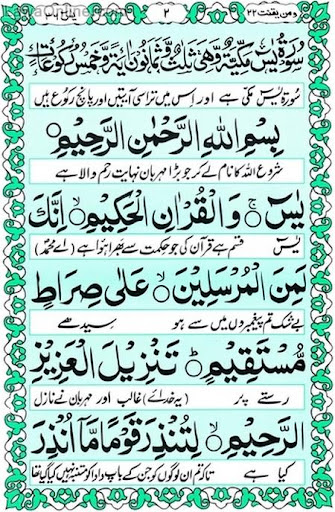 ومن يقنت ٢٢
٢
سُوْرَةُ يٰسٓ مَكِّيَّةٌ وَّهِيَ ثَلٰثٌ وَّثَمَانُوْنَ اٰيَةً وَّخَمْسُ رُكُوْعَاتٍ
سورۃ یٰس مکی ہے اور اس میں تراسی آیتیں اور پانچ رکوع ہیں
بِسْمِ اللّٰهِ الرَّحْمٰنِ الرَّحِيْمِ
شروع اللہ کا نام لے کر جو بڑا مہربان نہایت رحم والا ہے
يٰسٓ ۚ وَالْقُرْاٰنِ الْحَكِيْمِ ۙ اِنَّكَ
یٰس قسم ہے قرآن کی جو حکمت سے بھرا ہوا ہے (اے محمدؐ)
لَمِنَ الْمُرْسَلِيْنَ ۙ عَلٰى صِرَاطٍ
بے شک تم پیغمبروں میں سے ہو سیدھے
مُّسْتَقِيْمٍ ؕ تَنْزِيْلَ الْعَزِيْزِ
رستے پر (یہ خدائے) غالب اور مہربان نے نازل
الرَّحِيْمِ ۙ لِتُنْذِرَ قَوْمًا مَّاۤ اُنْذِرَ
کیا ہے تاکہ تم ان لوگوں کو جن کے باپ دادا کو متنبہ نہیں کیا گیا تھا